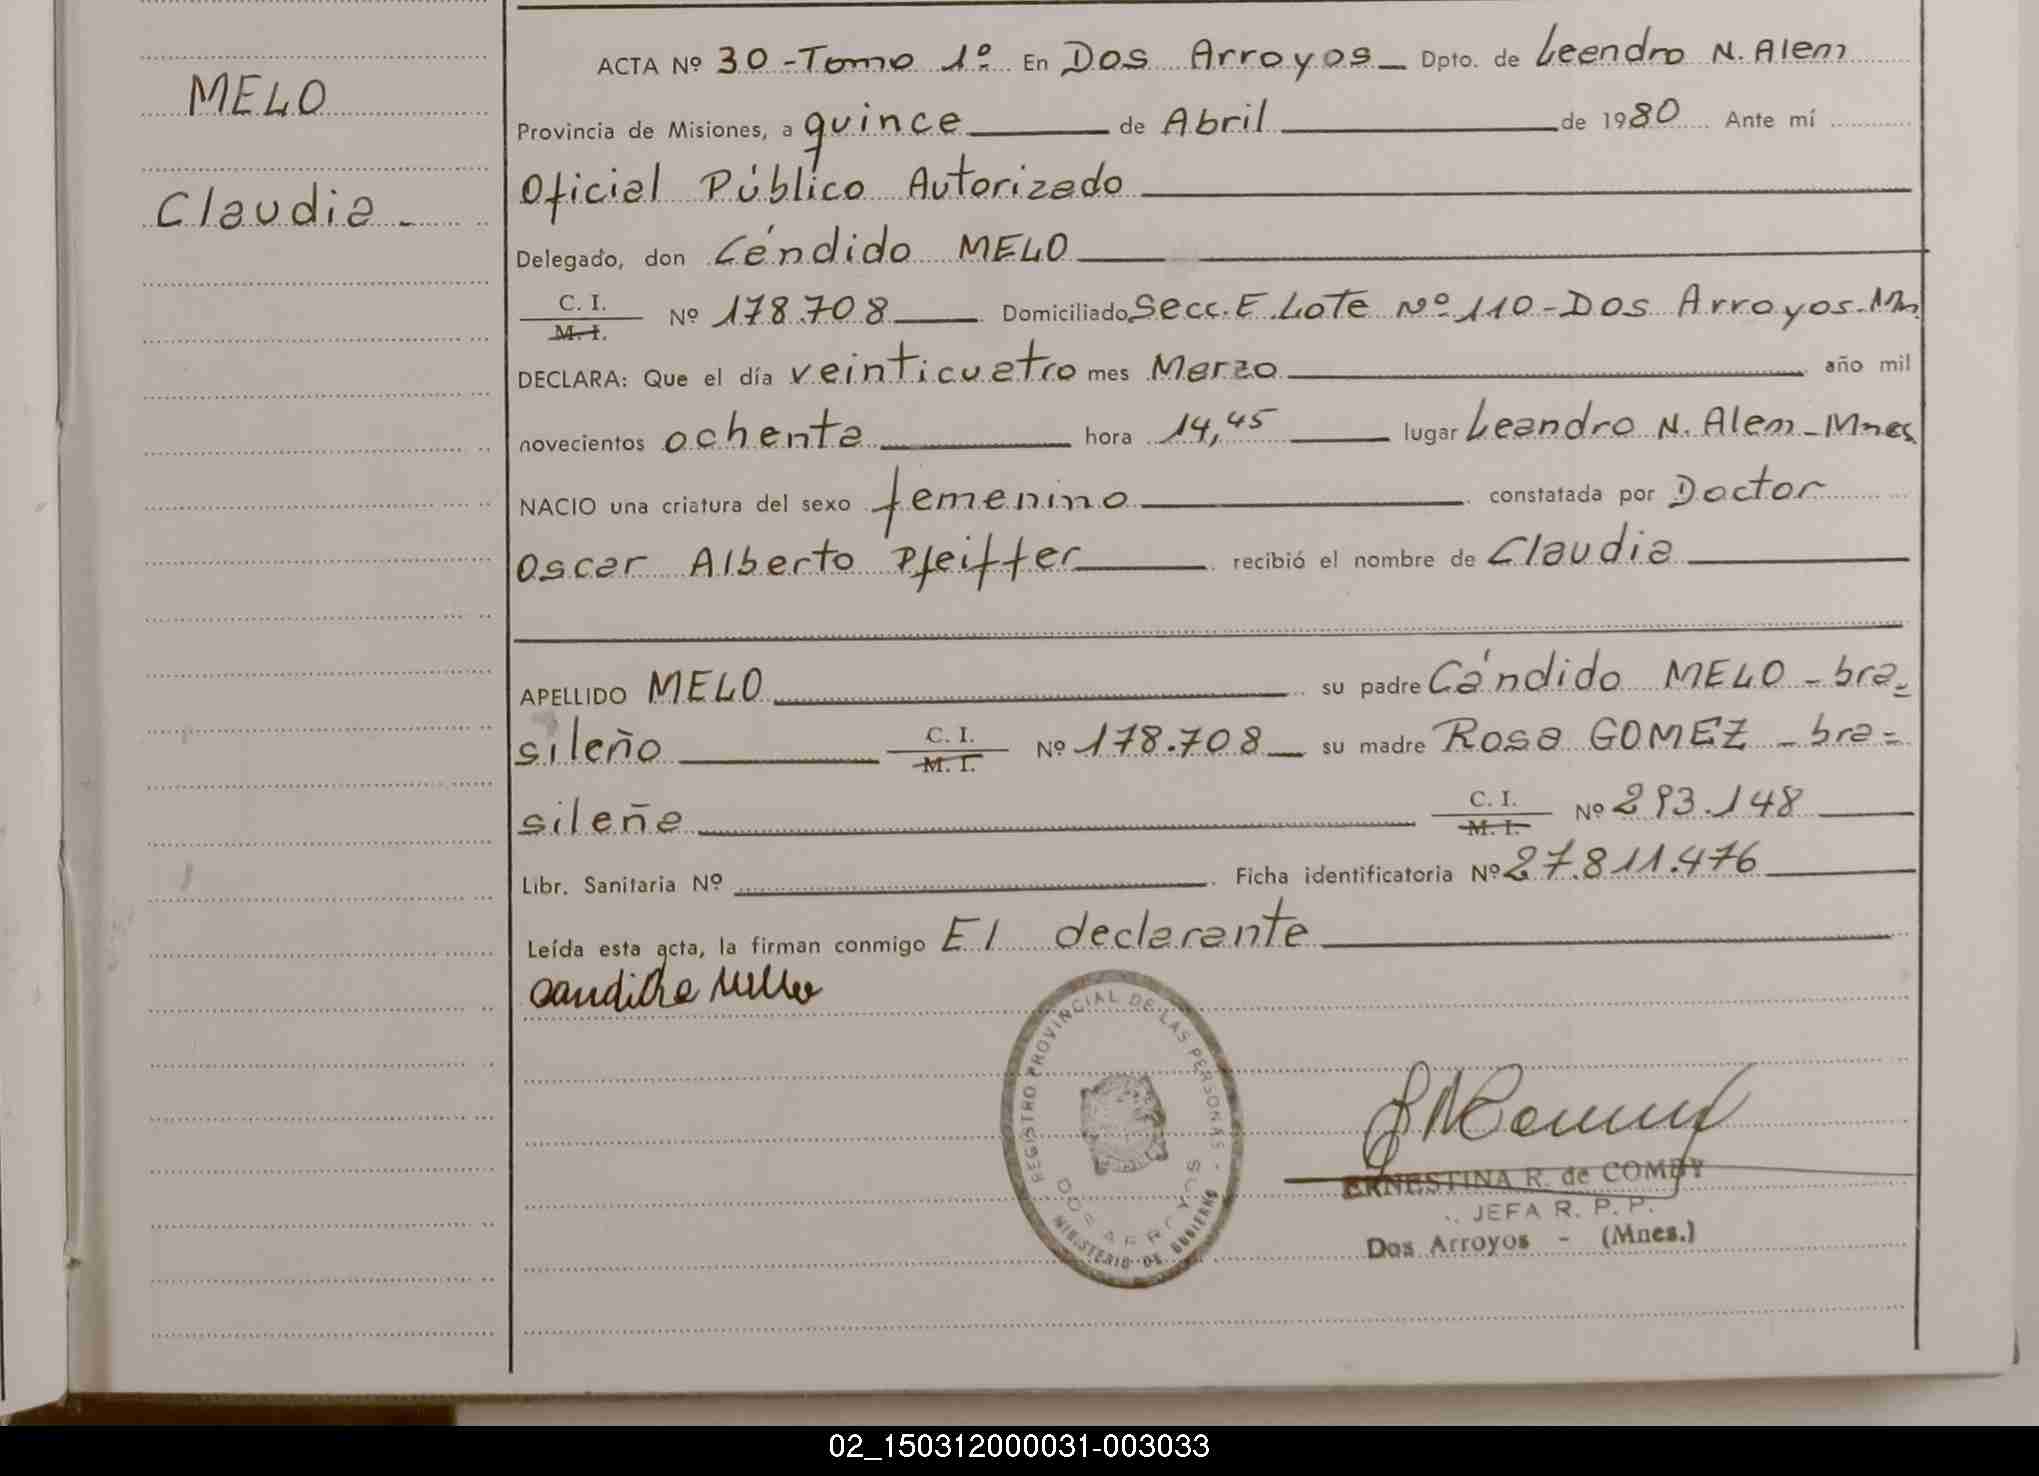 MELO
Claudia -
ACTA Nº 30 - Tomo 1º En Dos Arroyos - Dpto. de Leandro N. Alem
Provincia de Misiones, a quince de Abril de 1980 Ante mí
Oficial Público Autorizado
Delegado, don Cándido MELO
C. I.
M. I. Nº 178.708 Domiciliado Secc. E Lote Nº 110 - Dos Arroyos. Mn
DECLARA: Que el día veinticuatro mes Marzo año mil
novecientos ochenta hora 14,45 lugar Leandro N. Alem - Mnes
NACIO una criatura del sexo femenino constatada por Doctor
Oscar Alberto Pfeiffer recibió el nombre de Claudia
APELLIDO MELO su padre Cándido MELO - bra-
sileño C. I.
M. I. Nº 178.708 su madre Rosa GOMEZ - bra=
sileña C. I.
M. I. Nº 293.148
Libr. Sanitaria Nº Ficha identificatoria Nº 27.811.476
Leída esta acta, la firman conmigo El declarante
REGISTRO PROVINCIAL DE LAS PERSONAS -
DOS ARROYOS
MINISTERIO DE GOBIERNO
ERNESTINA R. de COMBY
JEFA R. P. P.
Dos Arroyos - (Mnes.)
02_150312000031-003033